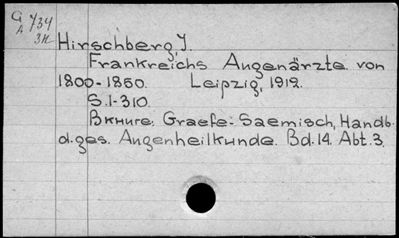 G 734
A 3н
Hirschberg, J.
Frankreichs Augenärzte von
1800-1850. Leipzig, 1912.
S. 1-310.
Вкниге: Graefe-Saemisch, Handb.
d. ges. Augenheilkunde. Bd. 14. Abt. 3.